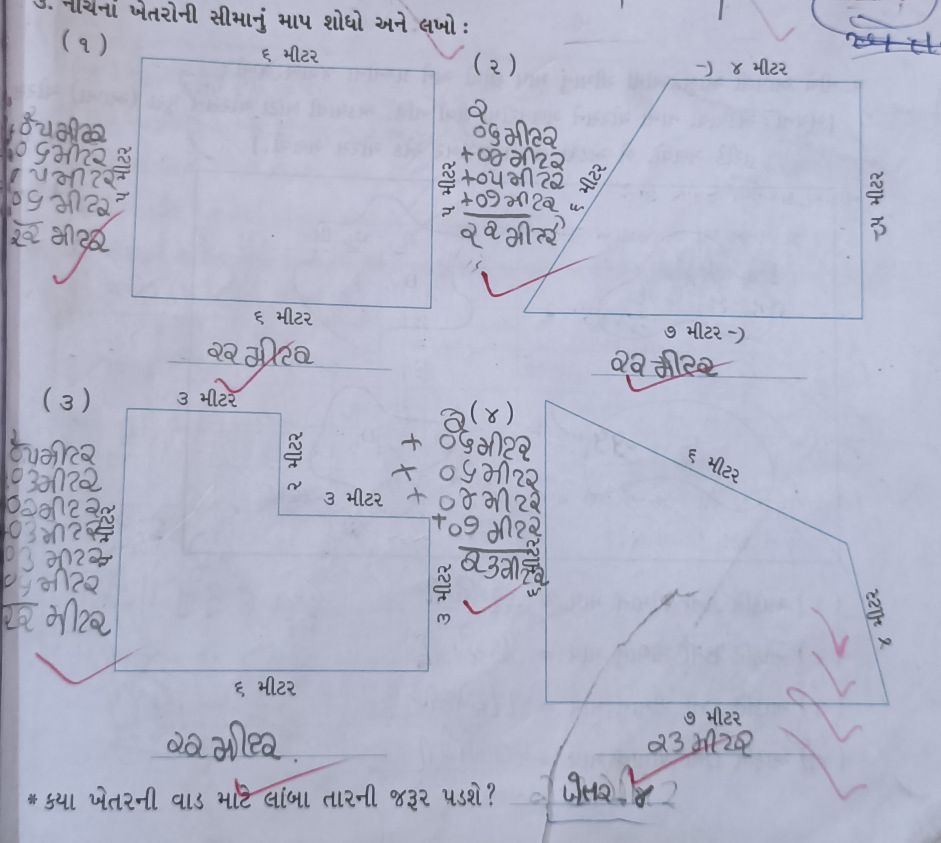 નીચેનાં ખેતરોની સીમાનું માપ શોધો અને લખો :
(૧)
૬ મીટર
૦૫મીટર
૦ ૬મીટર
૫ મીટર
૦૬ મીટર
૨૨ મીટર
૫ મીટર
૫ મીટર
૬ મીટર
૨૨ મીટર
(૨)
૪ મીટર
૨
૦૬મીટર
+૦૪મીટર
+૦૫મીટર
+૦૭મીટર
૨૨મીટર
૬ મીટર
૫ મીટર
૭ મીટર
૨૨ મીટર
(૩)
૩ મીટર
૦૫મીટર
૦૩મીટર
૦૨મીટર
૦૩મીટર
૦૩ મીટર
૦૬મીટર
૨૨ મીટર
૨ મીટર
૩ મીટર
૫ મીટર
૩ મીટર
૬ મીટર
૨૨ મીટર
(૪)
૨
+ ૦૬મીટર
+ ૦૬મીટર
+ ૦૪મીટર
+૦૭ મીટર
૨૩મીટર
૬ મીટર
૬ મીટર
૪ મીટર
૭ મીટર
૨૩મીટર
* કયા ખેતરની વાડ માટે લાંબા તારની જરૂર પડશે? ખેતર ૪